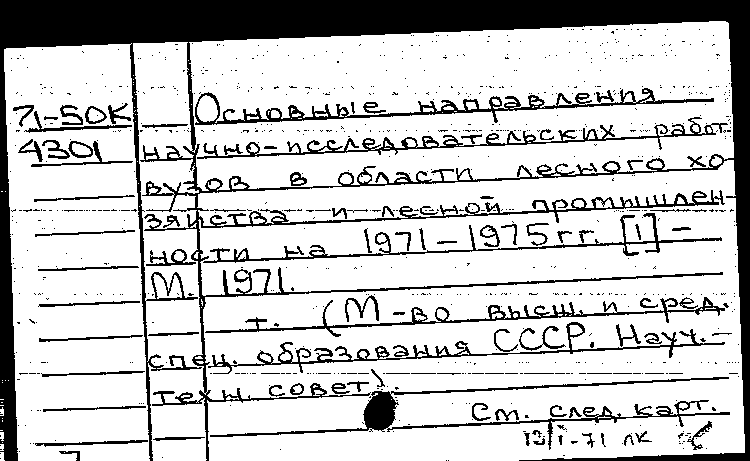 71-50К Основные направления
4301 научно-исследовательских работ
вузов в области лесного хо-
зяйства и лесной промышлен-
ности на 1971-1975 гг. [1] -
М., 1971.
т. (М-во высш. и сред.
спец. образования СССР. Науч.-
техн. совет).
См. след. карт.
71 лк